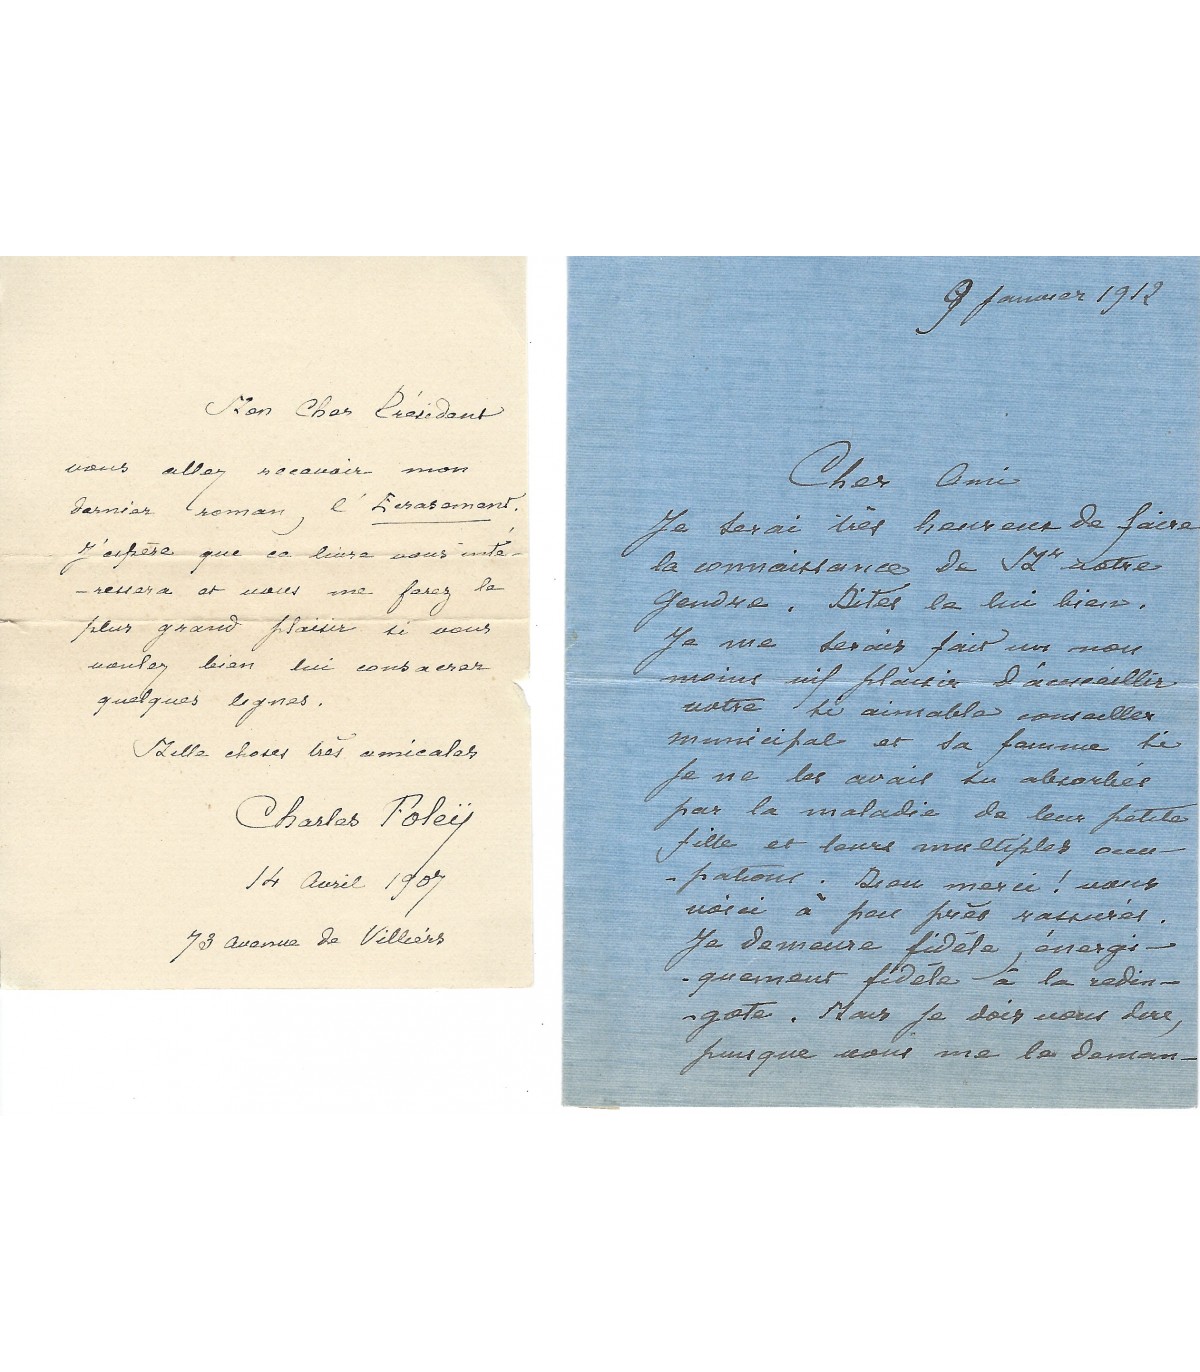 Mon Cher Président
vous allez recevoir mon
dernier roman, l'Ecrasement.
J'espère que ce livre vous inté-
-ressera et vous me ferez le
plus grand plaisir si vous
voulez bien lui consacrer
quelques lignes.
Mille choses très amicales
Charles Foleÿ
14 Avril 1907
73 avenue de Villiers
9 Janvier 1912
Cher Ami
Je serai très heureux de faire
la connaissance de Mr votre
Gendre. Dites le lui bien.
Je me serais fait un non
moins vif plaisir d'accueillir
votre si aimable conseiller
municipal et sa femme si
je ne les avais su absorbés
par la maladie de leur petite
fille et leurs multiples occu-
-pations. Dieu merci! vous
voici à peu près rassurés.
Je demeure fidèle, énergi-
-quement fidèle à la redin-
-gote. Mais je dois vous dire,
puisque vous me le deman-